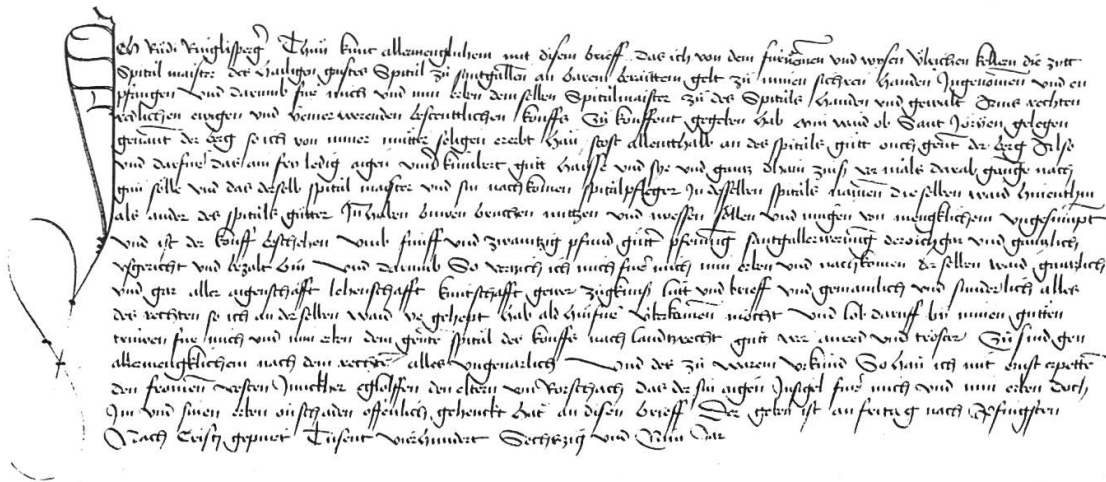 Ich Rüdi Ringglisperg Thun kunt allermenglichem mit disem brieff das ich von dem fürnemen und wysen Ulrichen kellern die zitt
Spitalmaister des hailigen gaistes Spital zů Santgallen an barem beraittem gelt zů minen sichren handen Ingenomen und en
pfangen und darumb für mich und min erben dem selben Spitalmaister zů des Spitals handen und gewalt Ains rechten
redlichen ewigen und yemer werenden bestenttlichen kouffs zů kouffent gegeben hab min waid ob Sant Jörgen gelegen
genant der berg so ich von miner můtter säligen ererbt han stost allenthalb an des spitals gůtt ouch genant der berg
und darfür das am fry ledig aigen unverkümbert gůtt haisse und sye und gantz dhain zinß vor mals darab gange nach
gan sölle und das derselb spital maister und sin nachkomen spitalpfleger In desselben spitals namen die selben waid hinenthin
als ander des spitals gütter Inhaben buwen bruchen nutzen und niessen söllen und mugen von mengklichem ungesumpt
und ist der kouff beschehen umb fünff und zwaintzig pfund gůtter pfenning santgaller werung dero ich gar und gäntzlich
ußgericht und bezalt bin und darumb So verzich ich mich für mich min erben und nachkomen der selben waid gäntzlich
und gar aller aigenschafft lehenschafft kuntschafft gewer zügknuß lütt und brieff und gemainlich und sunderlich alles
des rechten so ich an der selben waid ye gehept hab ald hinfür überkomen möcht und lob daruff by minen gůtten
trüwen für mich und min erben dem genanten spital des kouffs nach landtzrecht gůtt wer ze sind und tröster Zů sind gen
allermengklichem nach dem rechten alles ungevarlich und des zů warem urkünd So han ich mit ernst erpetten
den fromen vesten Junckher Egloffen den eltern von Rorschach das der sin aigen Insigel für mich und min erben doch
Im und sinen erben on schaden offenlich gehenckt hat an disen brieff Der geben ist an fritag nach Pfingsten
Nach Cristz gepurt Tusent vierhundert Sechtzig und Nün Jar